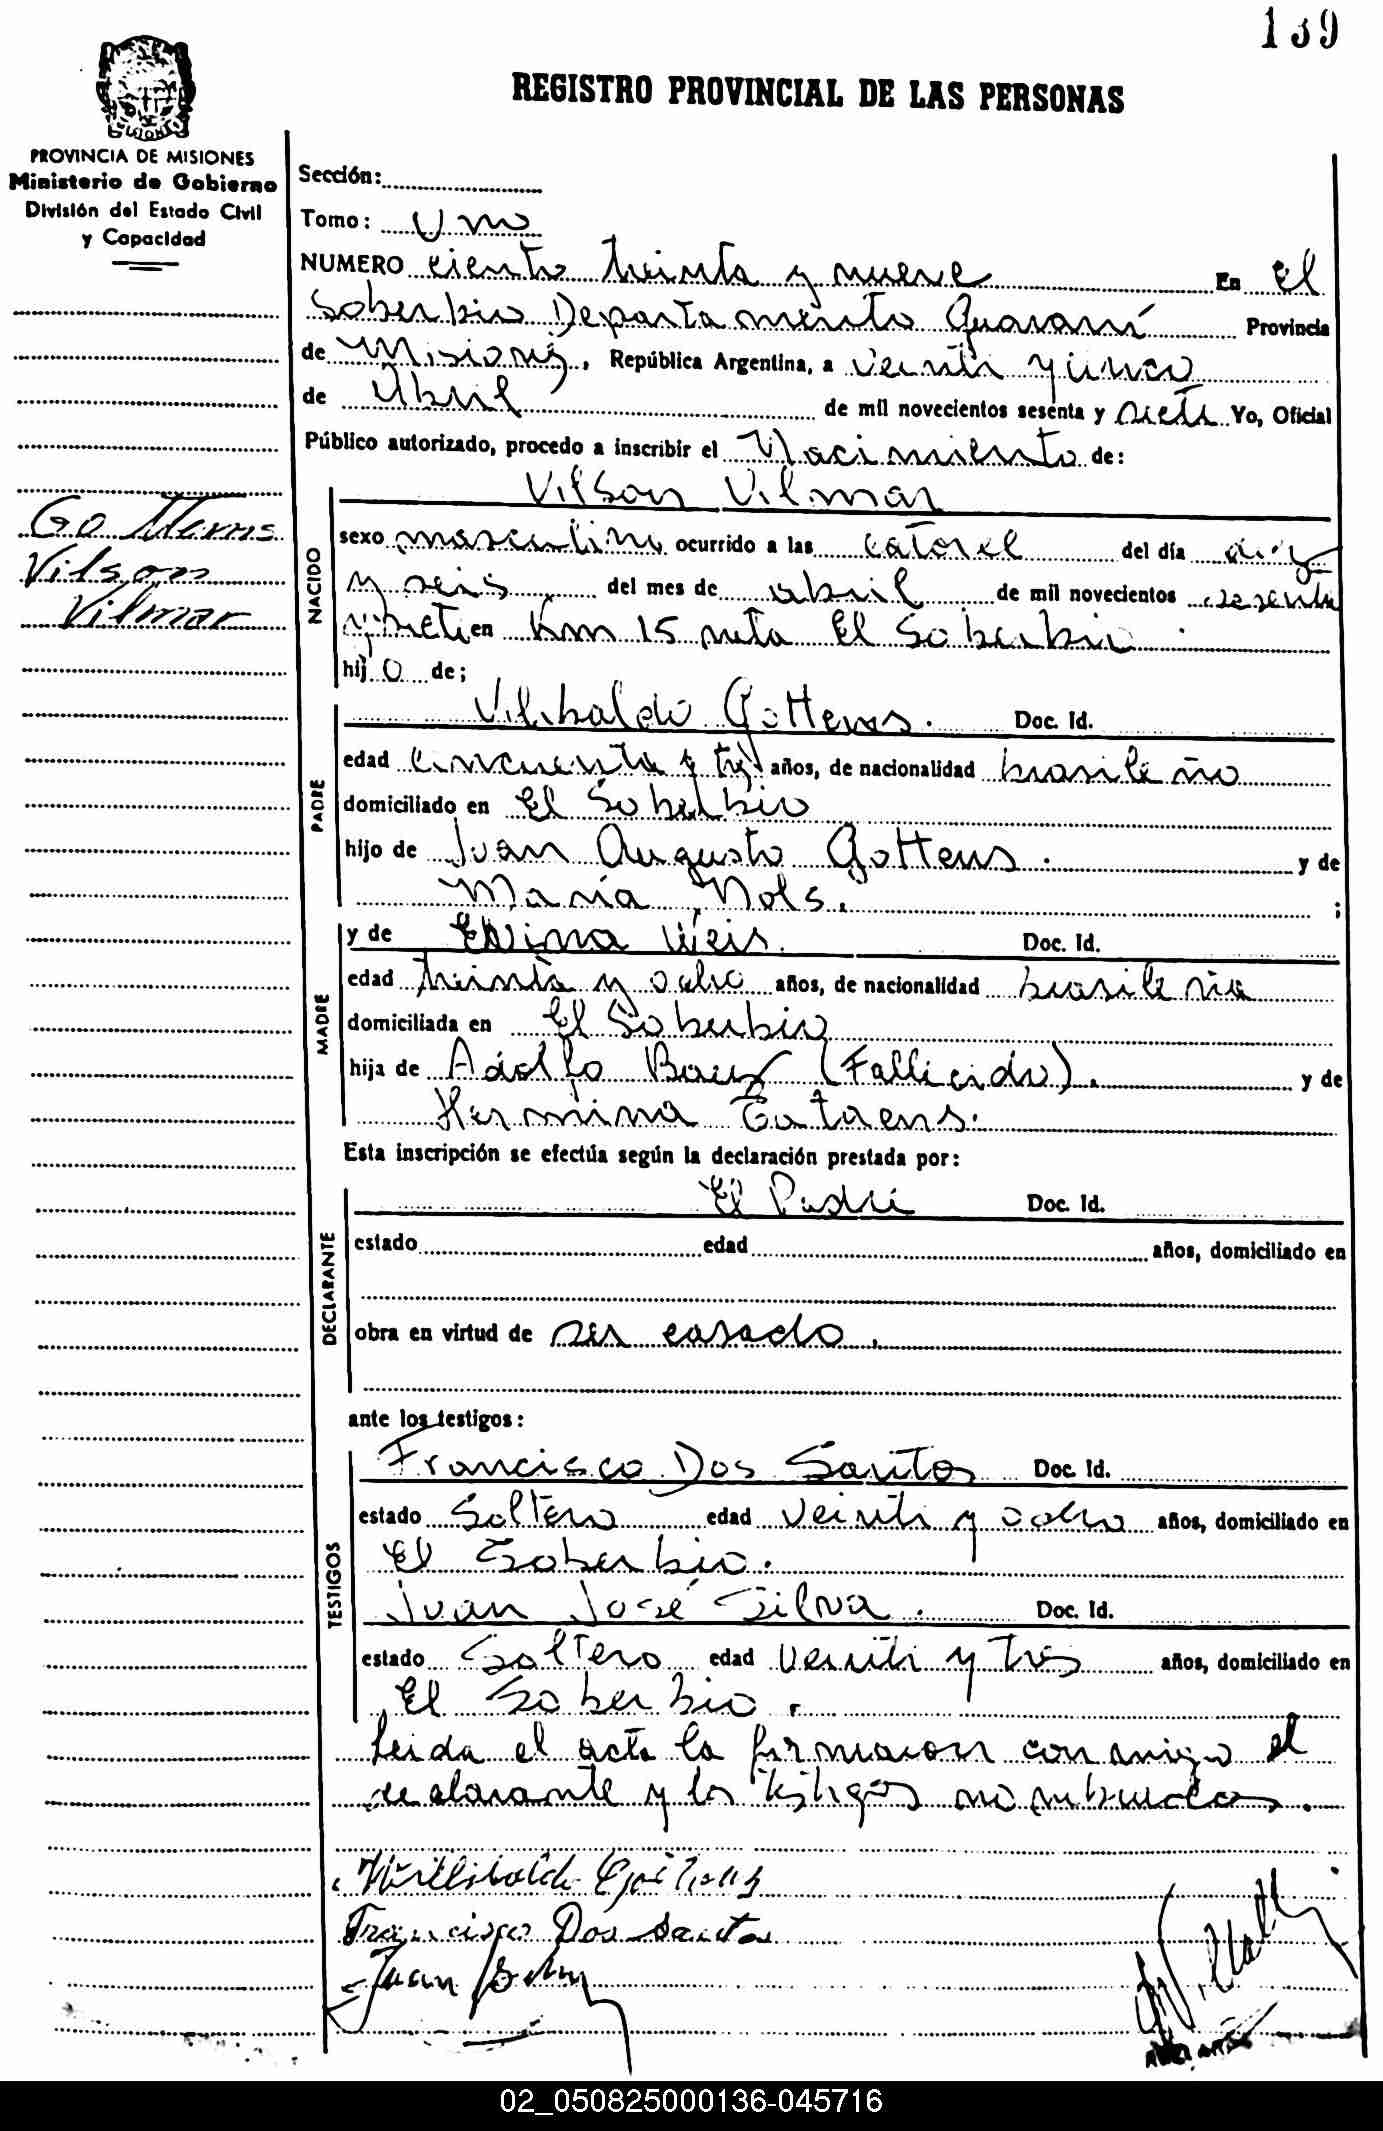 139
REGISTRO PROVINCIAL DE LAS PERSONAS
MISIONES
PROVINCIA DE MISIONES
Ministerio de Gobierno
División del Estado Civil
y Capacidad
Gottems
Vilson
Vilmar
Sección:
Tomo: Uno
NUMERO ciento treinta y nueve En El
Soberbio Departamento Guaraní Provincia
de Misiones, República Argentina, a veinti y cinco
de Abril de mil novecientos sesenta y siete Yo, Oficial
Público autorizado, procedo a inscribir el Nacimiento de:
Vilson Vilmar
NACIDO
sexo masculino ocurrido a las catorce del día diez
y seis del mes de abril de mil novecientos sesenta
y siete en Km 15 ruta El Soberbio
hijo de;
PADRE
Vilibaldo Gottems. Doc. Id.
edad cincuenta y tres años, de nacionalidad brasileño
domiciliado en El Soberbio
hijo de Juan Augusto Gottems. y de
María Nols. ;
MADRE
y de Elvina Weis. Doc. Id.
edad treinta y ocho años, de nacionalidad brasileña
domiciliada en El Soberbio
hija de Adolfo (Fallicido). y de
Hermina
Esta inscripción se efectúa según la declaración prestada por:
DECLARANTE
El Padre Doc. Id.
estado edad años, domiciliado en
obra en virtud de ser casado.
ante los testigos:
TESTIGOS
Francisco Dos Santos Doc. Id.
estado Soltero edad veinti y ocho años, domiciliado en
El Soberbio.
Juan José Silva. Doc. Id.
estado Soltero edad veinti y tres años, domiciliado en
El Soberbio.
Leida el acta la firmaron conmigo el
declarante y los testigos nombrados.
Francisco Dos Santos
Juan
02_050825000136-045716